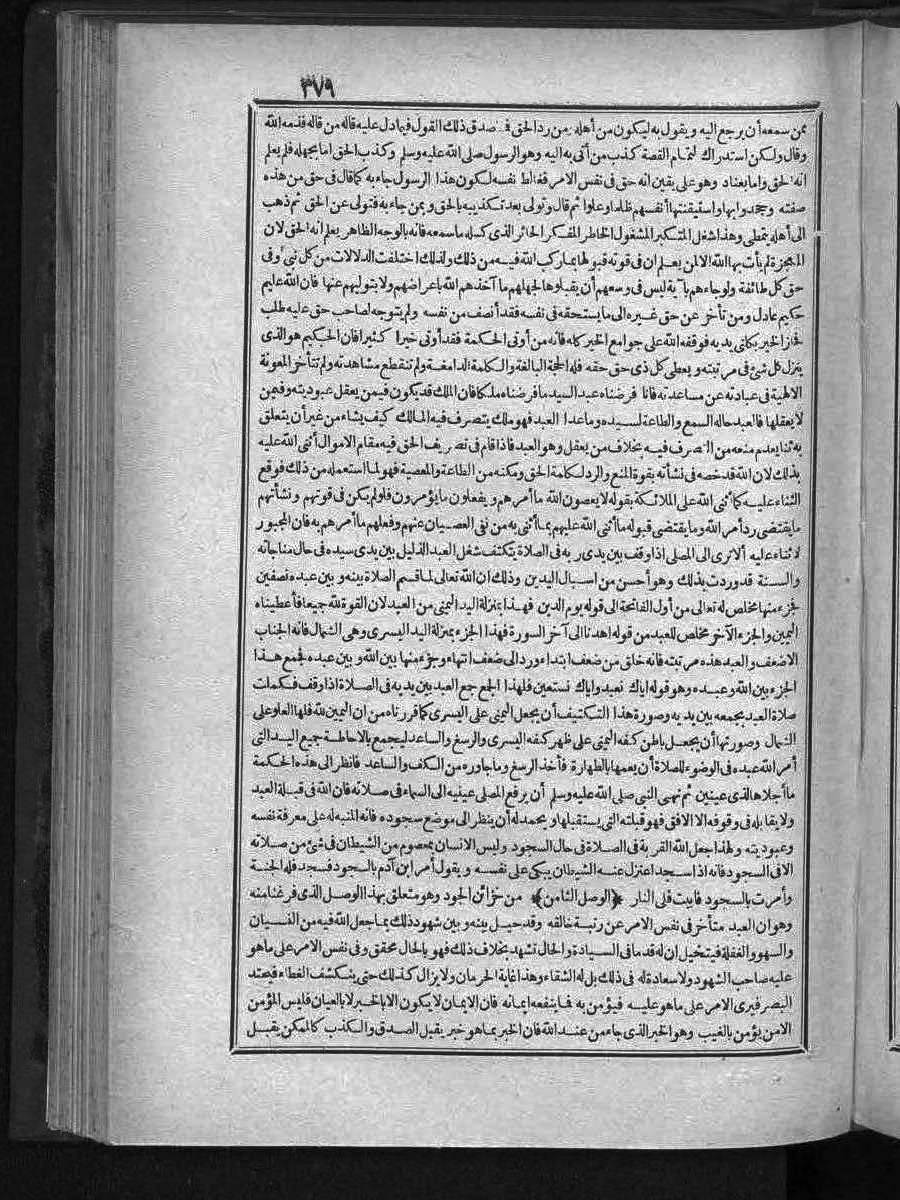 ٣٧٩
ممن سمعه أن يرجع اليه ويقول به ليكون من أهله فمن رد الحق فما صدق ذلك القول فيما دل عليه قاله من قاله فذمه الله
وقال ولكن استدراك لتمام القصة كذب من أتى به اليه وهو الرسول صلى الله عليه وسلم وكذب الحق اما بجهله فلم يعلم
انه الحق واما بعناد وهو على يقين انه حق فى نفس الامر فغالط نفسه لكون هذا الرسول جاء به كما قال فى حق من هذه
صفته وجحدوا بها واستيقنتها أنفسهم ظلما وعلوا ثم قال وتولى بعد تكذيبه بالحق وبمن جاء به فتولى عن الحق ثم ذهب
الى أهله يتمطى وهذا شغل المتكبر المشغول الخاطر المفكر الحائر الذى كسله ما سمعه فانه بالوجه الظاهر يعلم انه الحق لان
المعجزة لم يأت بها الله الا لمن يعلم ان فى قوته قبولها بما ركب الله فيه من ذلك ولذلك اختلفت الدلالات من كل نبى وفى
حق كل طائفة ولو جاءهم بآية ليس فى وسعهم أن يقبلوها لجهلهم ما آخذهم الله باعراضهم ولا بتوليهم عنها فان الله عليم
حكيم عادل ومن تأخر عن حق غيره الى ما يستحقه فى نفسه فقد أنصف من نفسه ولم يتوجه لصاحب حق عليه طلب
فحاز الخير بكلتى يديه فوقفه الله على جوامع الخير كله فانه من أوتى الحكمة فقد أوتى خيرا كثيرا فان الحكيم هو الذى
ينزل كل شئ فى مرتبته ويعطى كل ذى حق حقه فله الحجة البالغة والكلمة الدامغة ولم تنقطع مشاهدته ولم تتأخر المعونة
الالهية فى عبادته عن مساعدته فانا فرضناه عبد السيد ما فرضناه ملكا فان الملك قد يكون فيمن يعقل عبوديته وفيمن
لا يعقلها فالعبد حاله السمع والطاعة لسيده وما عدا العبد فهو ملك يتصرف فيه المالك كيف يشاء من غير أن يتعلق
به ثناء بعدم منعه من التصرف فيه بخلاف من يعقل وهو العبد فاذا قام فى تصريف الحق فيه مقام الاموال أثنى الله عليه
بذلك لان الله قد خصه فى نشأته بقوة المنع والرد لكلمة الحق ومكنه من الطاعة والمعصية فهو لما استعمله من ذلك فوقع
الثناء عليه كما أثنى الله على الملائكة بقوله لا يعصون الله ما أمرهم ويفعلون ما يؤمرون فلو لم يكن فى قوتهم ونشأتهم
ما يقتضى رد أمر الله وما يقتضى قبوله ما أثنى الله عليهم بما أثنى به من نفى العصيان عنهم وفعلهم ما أمرهم به فان المجبور
لا ثناء عليه ألا ترى الى المصلى اذا وقف بين يدى ربه فى الصلاة يتكتف شغل العبد الذليل بين يدى سيده فى حال مناجاته
والسنة قد وردت بذلك وهو أحسن من اسبال اليدين وذلك ان الله تعالى لما قسم الصلاة بينه وبين عبده نصفين
فجزء منها مخلص له تعالى من أول الفاتحة الى قوله يوم الدين فهذا بمنزلة اليد اليمنى من العبد لان القوة لله جميعا فأعطيناه
اليمين والجزء الآخر مخلص للعبد من قوله اهدنا الى آخر السورة فهذا الجزء بمنزلة اليد اليسرى وهى الشمال فانه الجناب
الاضعف والعبد هذه مرتبته فانه خلق من ضعف ابتداء ورد الى ضعف انتهاء وجزء منها بين الله وبين عبده فجمع هذا
الجزء بين الله وعبده وهو قوله اياك نعبد واياك نستعين فلهذا الجمع جمع العبد بين يديه فى الصلاة اذا وقف فكملت
صلاة العبد بجمعه بين يديه وصورة هذا التكتيف أن يجعل اليمنى على اليسرى كما قررناه من ان اليمين لله فلها العلو على
الشمال وصورتها أن يجعل باطن كفه اليمنى على ظهر كفه اليسرى والرسغ والساعد ليجمع بالاحاطة جميع اليد التى
أمر الله عبده فى الوضوء للصلاة أن يعمها بالطهارة فأخذ الرسغ وما جاوره من الكف والساعد فانظر الى هذه الحكمة
ما أجلاها لذى عينين ثم نهى النبى صلى الله عليه وسلم أن يرفع المصلى عينيه الى السماء فى صلاته فان الله فى قبلة العبد
ولا يقابله فى وقوفه الا الافق فهو قبلته التى يستقبلها ويحمد له أن ينظر الى موضع سجوده فانه المنبه له على معرفة نفسه
وعبوديته ولهذا جعل الله القربة فى الصلاة فى حال السجود وليس الانسان بمعصوم من الشيطان فى شئ من صلاته
الا فى السجود فانه اذا سجد اعتزل عنه الشيطان يبكى على نفسه ويقول أمر ابن آدم بالسجود فسجد فله الجنة
وأمرت بالسجود فابيت فلى النار ﴿الوصل الثامن﴾ من خزائن الجود وهو متعلق بهذا الوصل الذى فرغنا منه
وهو ان العبد متأخر فى نفس الامر عن رتبة خالقه وقد حيل بينه وبين شهود ذلك بما جعل الله فيه من النسيان
والسهو والغفلة فيتخيل ان له قدما فى السيادة والحال تشهد بخلاف ذلك فهو بالحال محقق وفى نفس الامر على ما هو
عليه صاحب الشهود ولا سعادة له فى ذلك بل له الشقاء وهذا غاية الحرمان ولا يزال كذلك حتى ينكشف الغطاء فيحتد
البصر فيرى الامر على ما هو عليه فيؤمن به فما ينفعه ايمانه فان الايمان لا يكون الا بالخبر لا بالعيان فليس المؤمن
الا من يؤمن بالغيب وهو الخبر الذى جاء من عند الله فان الخبر بما هو خبر يقبل الصدق والكذب كالممكن يقبل